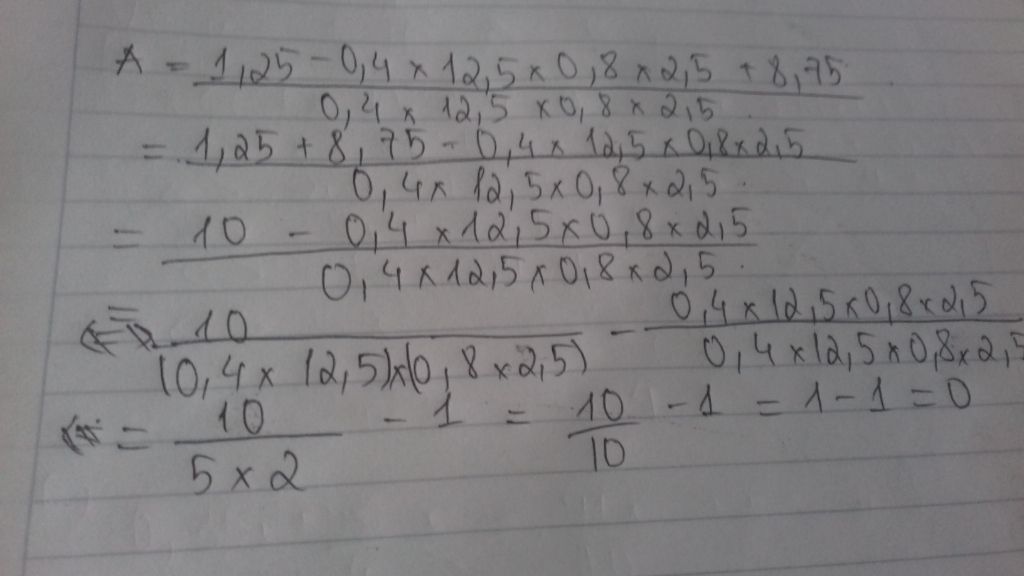 A = 1,25 - 0,4 × 12,5 × 0,8 × 2,5 + 8,75
0,4 × 12,5 × 0,8 × 2,5
= 1,25 + 8,75 - 0,4 × 12,5 × 0,8 × 2,5
0,4 × 12,5 × 0,8 × 2,5
= 10 - 0,4 × 12,5 × 0,8 × 2,5
0,4 × 12,5 × 0,8 × 2,5
= 10 - 0,4 × 12,5 × 0,8 × 2,5
(0,4 × 12,5) × (0,8 × 2,5) 0,4 × 12,5 × 0,8 × 2,5
= 10 - 1 = 10 - 1 = 1 - 1 = 0
5 × 2 10